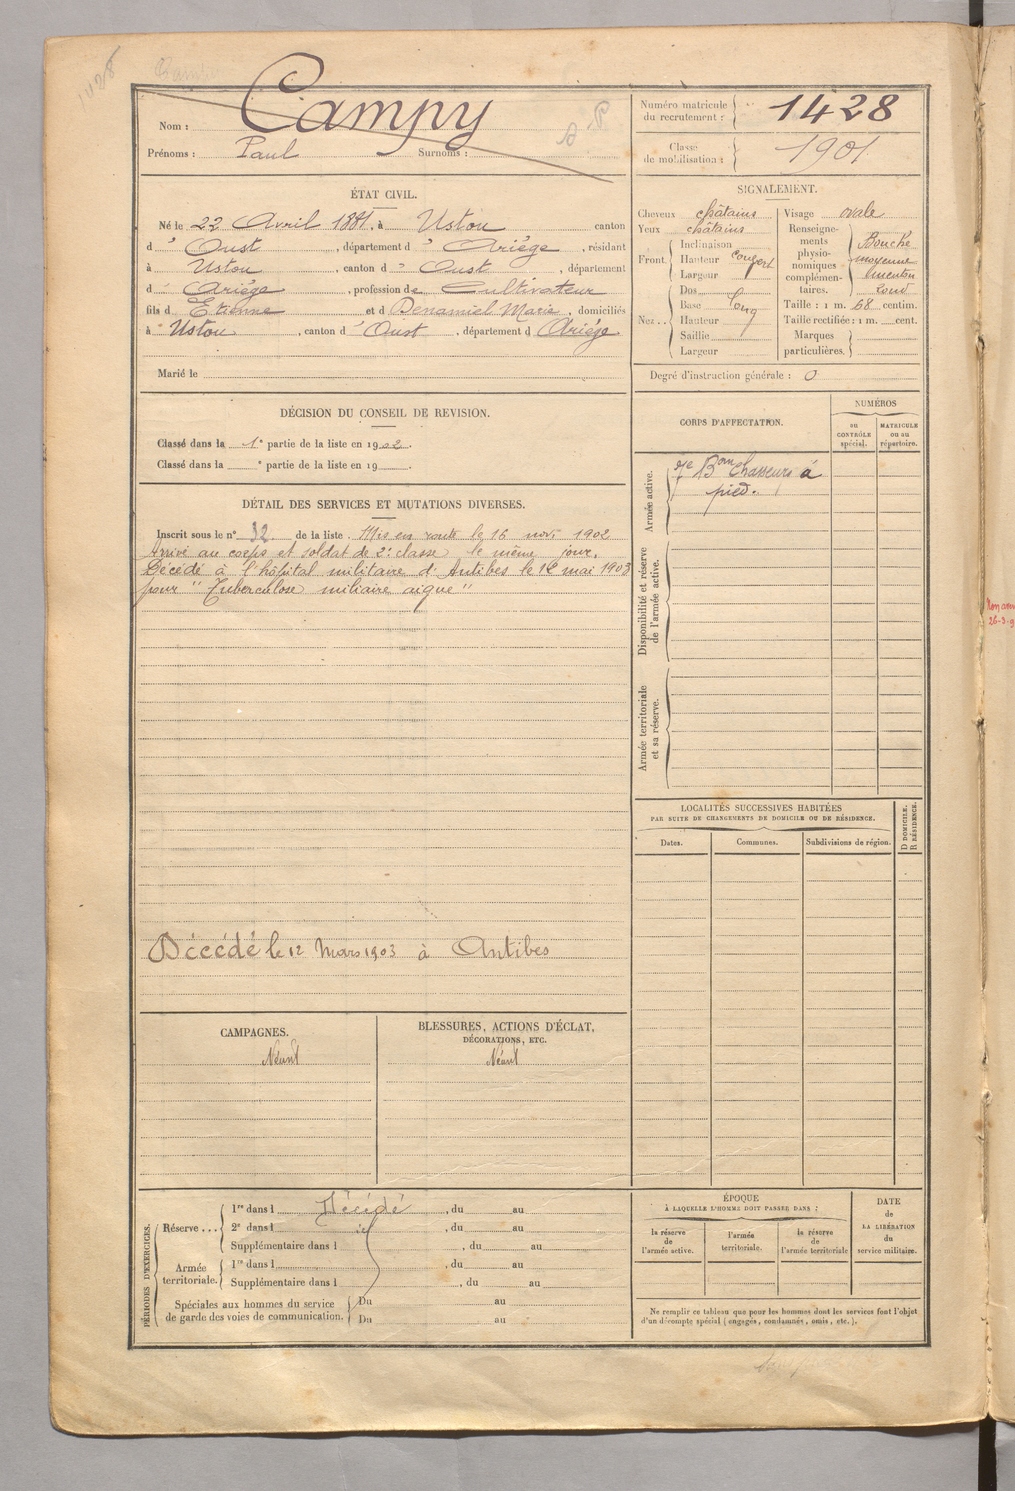 1428
Nom : Campy
Prénoms : Paul Surnoms :
Numéro matricule du recrutement : 1428
Classe de mobilisation : 1901
ÉTAT CIVIL.
Né le 22 Avril 1881, à Ustou canton
d' Oust, département d' Ariège, résidant
à Ustou, canton d' Oust, département
d' Ariège, profession de Cultivateur
fils d' Etienne et d Benamiel Marie, domiciliés
à Ustou, canton d' Oust, département d Ariège
Marié le
SIGNALEMENT.
Cheveux châtains
Yeux châtains
Front. Inclinaison
Hauteur
Largeur
Nez.. Dos
Base long
Hauteur
Saillie
Largeur
Visage ovale
Renseignements physionomiques complémentaires. Bouche
moyenne
menton
rond
Taille : 1 m. 68 centim.
Taille rectifiée : 1 m. cent.
Marques particulières.
Degré d'instruction générale : 0
DÉCISION DU CONSEIL DE REVISION.
Classé dans la 1e partie de la liste en 1902.
Classé dans la e partie de la liste en 19 .
DÉTAIL DES SERVICES ET MUTATIONS DIVERSES.
Inscrit sous le n° 32 de la liste. Mis en route le 16 novi 1902
Arrivé au corps et soldat de 2e classe le même jour.
Décédé à l'hôpital militaire d'Antibes le 12 mai 1903
pour "Tuberculose miliaire aigue"
Décédé le 12 Mars 1903 à Antibes
CORPS D'AFFECTATION.
NUMÉROS
au CONTRÔLE spécial.
MATRICULE ou au répertoire.
Armée active.
7e Bon Chasseurs à
pied.
Disponibilité et réserve de l'armée active.
Armée territoriale et sa réserve.
LOCALITÉS SUCCESSIVES HABITÉES
PAR SUITE DE CHANGEMENTS DE DOMICILE OU DE RÉSIDENCE.
Dates.
Communes.
Subdivisions de région.
D DOMICILE.
R RÉSIDENCE.
CAMPAGNES.
Néant
BLESSURES, ACTIONS D'ÉCLAT,
DÉCORATIONS, ETC.
Néant
PÉRIODES D'EXERCICES.
Réserve... 1re dans l Décédé, du au
2e dans l , du au
Supplémentaire dans l , du au
Armée territoriale. 1re dans l , du au
Supplémentaire dans l , du au
Spéciales aux hommes du service de garde des voies de communication. Du au
Du au
ÉPOQUE
À LAQUELLE L'HOMME DOIT PASSER DANS :
la réserve de l'armée active.
l'armée territoriale.
la réserve de l'armée territoriale
DATE de LA LIBÉRATION du service militaire.
Ne remplir ce tableau que pour les hommes dont les services font l'objet
d'un décompte spécial (engagés, condamnés, omis, etc.).